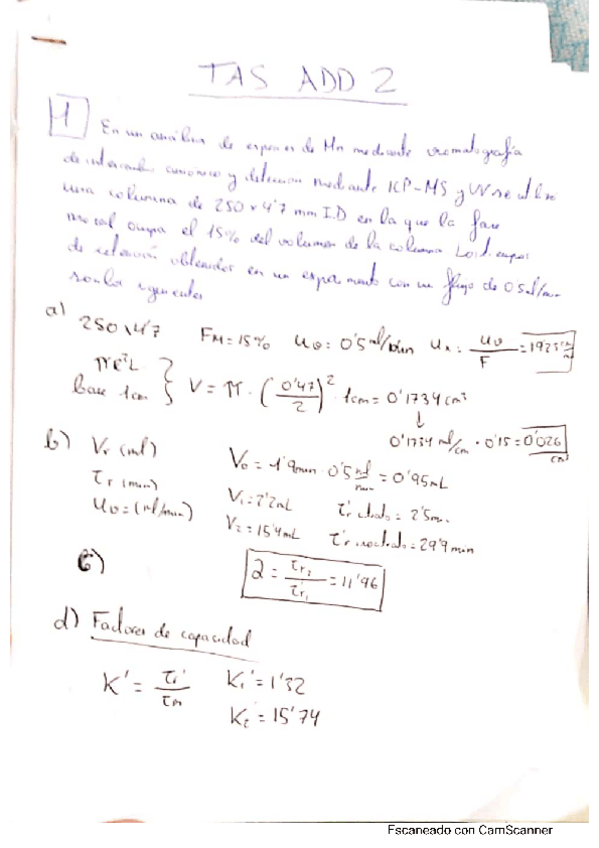 TAS ADD 2
1 En un análisis de especies de Mn mediante cromatografía
de intercambio aniónico y detección mediante ICP-MS y UV se utiliza
una columna de 250 x 4'7 mm I.D en la que la fase
móvil ocupa el 15% del volumen de la columna Los tiempos
de retención obtenidos en un experimento con un flujo de 0'5 ml/min
son los siguientes
a) 250x4'7 FM=15% u0=0'5 ml/min ux= u0/F =1923
πr²L
base 1cm } V = π · (0'47/2)² · 1cm = 0'1734 cm³
↓
0'1734 ml/cm · 0'15 = 0'026
b) Vr (ml) V0 = 1'9min · 0'5 ml/min = 0'95mL
τr (min) V1 = 2'2mL τ'r = 2'5m.
u0=(ml/min) V2 = 15'4mL τ'r = 29'9 min
c) 2 = τr2/τ'r1 = 11'96
d) Factores de capacidad
K' = τr'/τm K1' = 1'32
K2' = 15'74
Escaneado con CamScanner